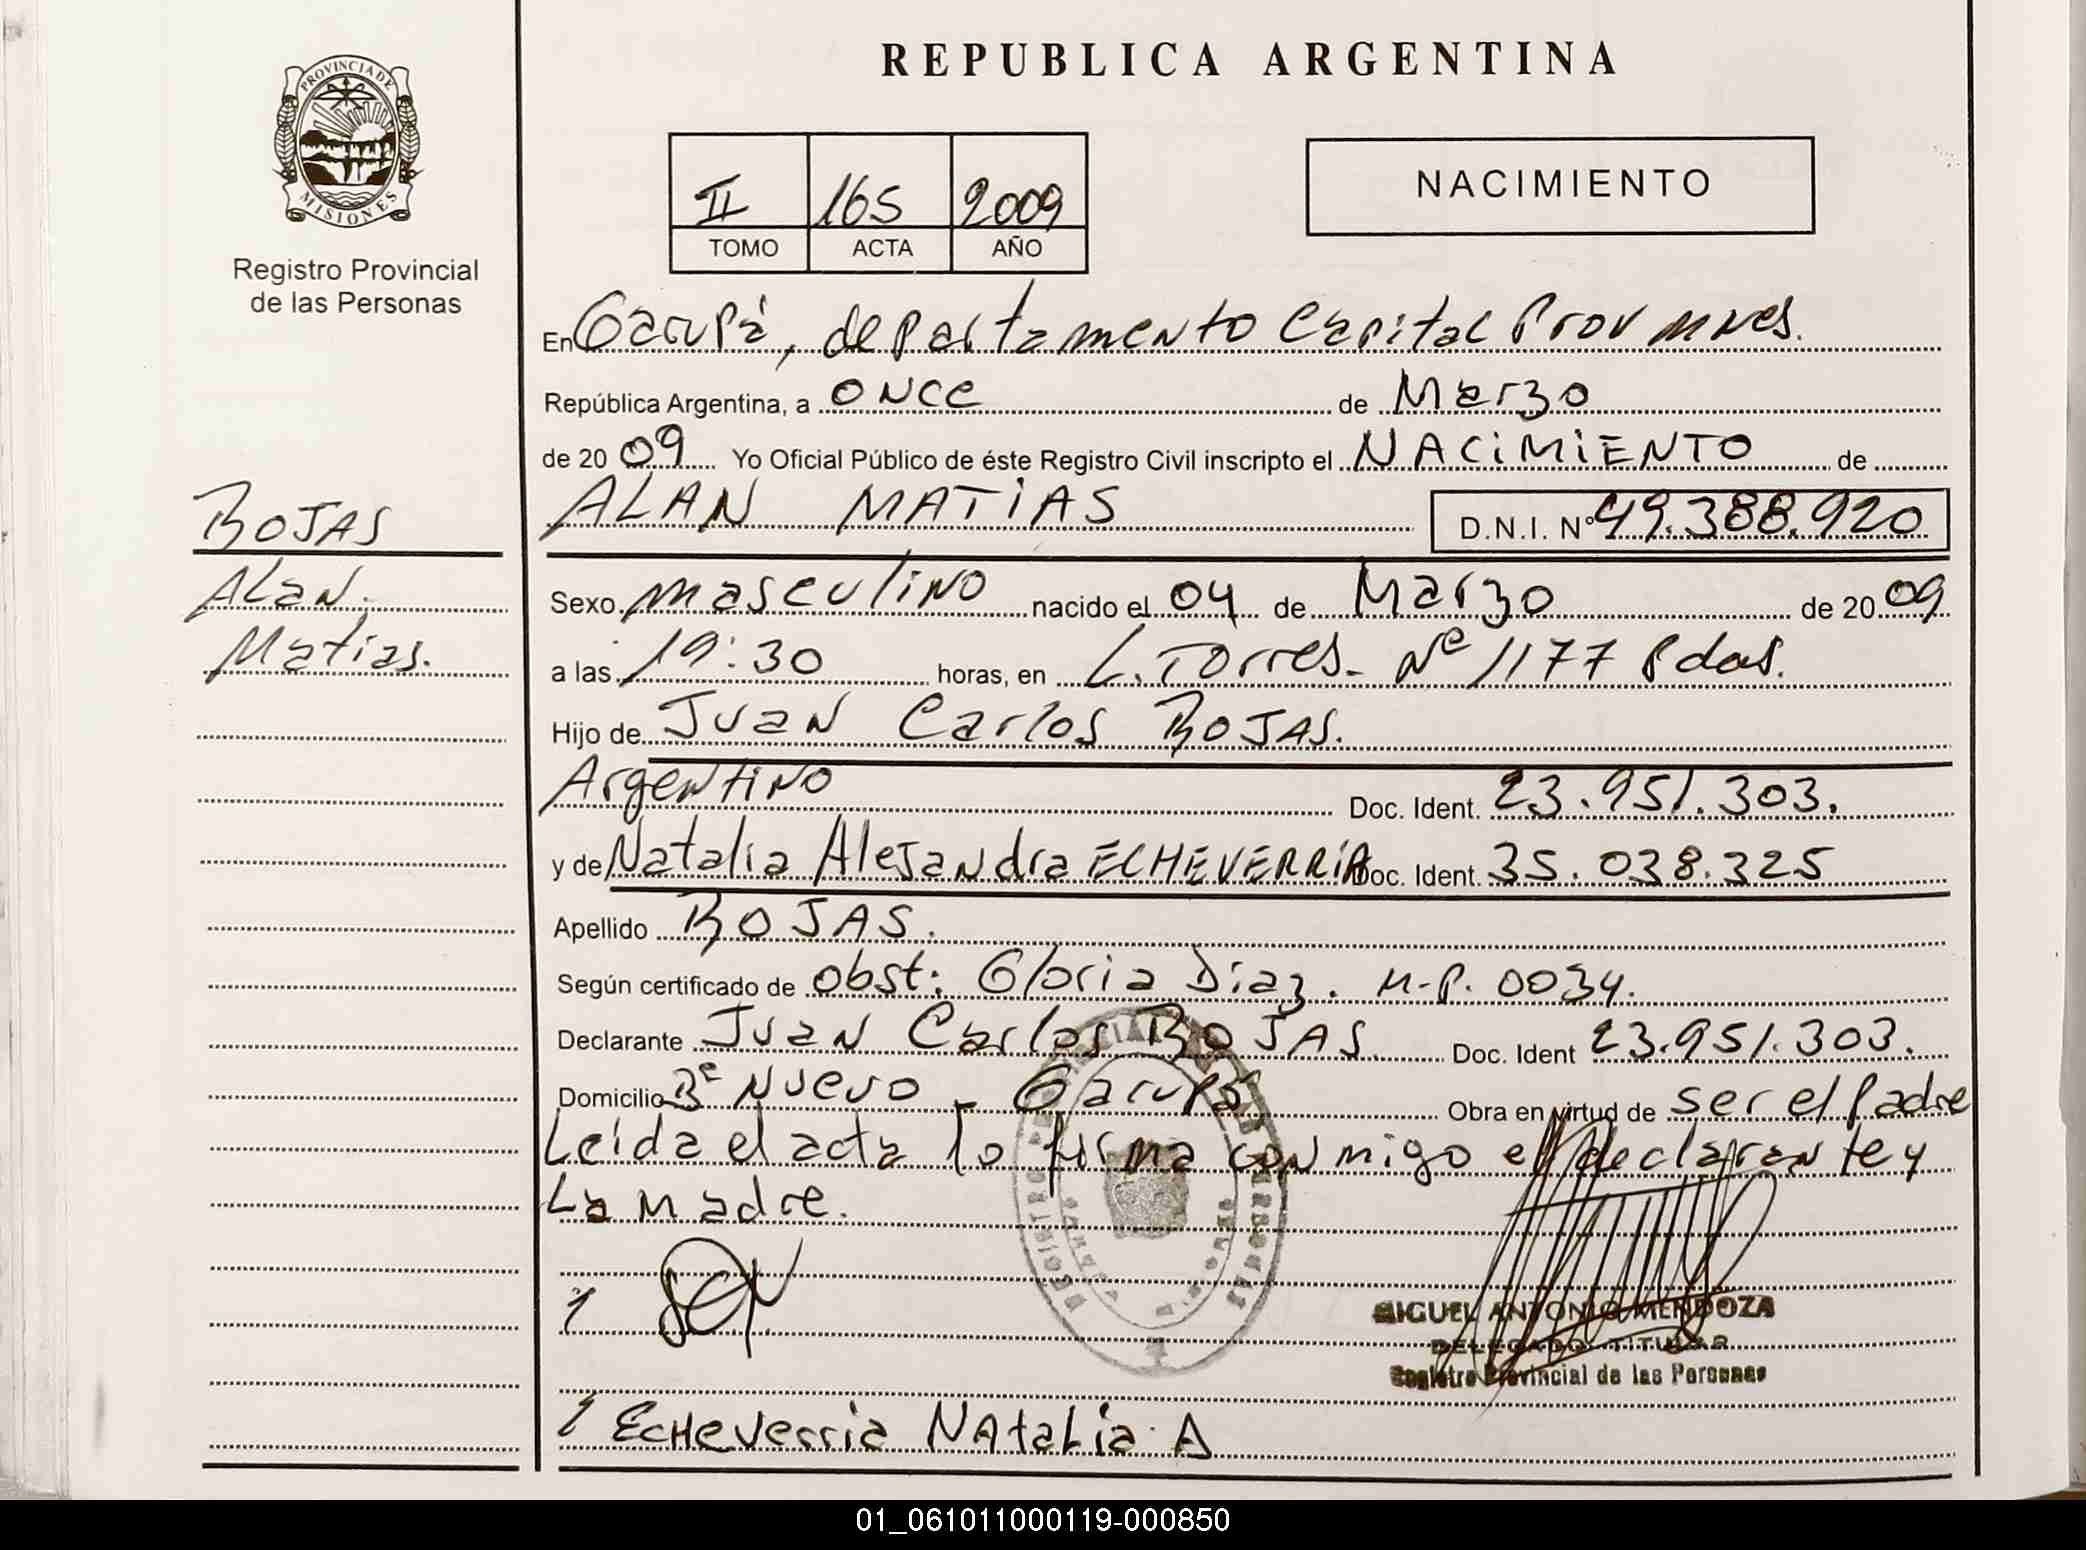 REPUBLICA ARGENTINA
PROVINCIA DE
MISIONES
Registro Provincial
de las Personas
NACIMIENTO
II 165 2009
TOMO ACTA AÑO
En Garupá, departamento Capital Prov Mnes.
República Argentina, a once de Marzo
de 2009 Yo Oficial Público de éste Registro Civil inscripto el NACIMIENTO de
ROJAS
Alan.
Matias.
ALAN MATIAS D.N.I. Nº 49.388.920
Sexo masculino nacido el 04 de Marzo de 2009
a las 19:30 horas, en L. Torres - Nº 1177 Pdas.
Hijo de Juan Carlos ROJAS.
Argentino Doc. Ident. 23.951.303.
y de Natalia Alejandra ECHEVERRÍA Doc. Ident. 35.038.325
Apellido ROJAS.
Según certificado de obst: Gloria Díaz. M-P. 0034.
Declarante Juan Carlos ROJAS. Doc. Ident 23.951.303.
Domicilio Bº Nuevo - Garupá Obra en virtud de ser el Padre
Leída el acta lo firma conmigo el declarante y
La madre.
MIGUEL ANTONIO MENDOZA
DELEGADO TITULAR
Registro Provincial de las Personas
Echeverria Natalia A
01_061011000119-000850